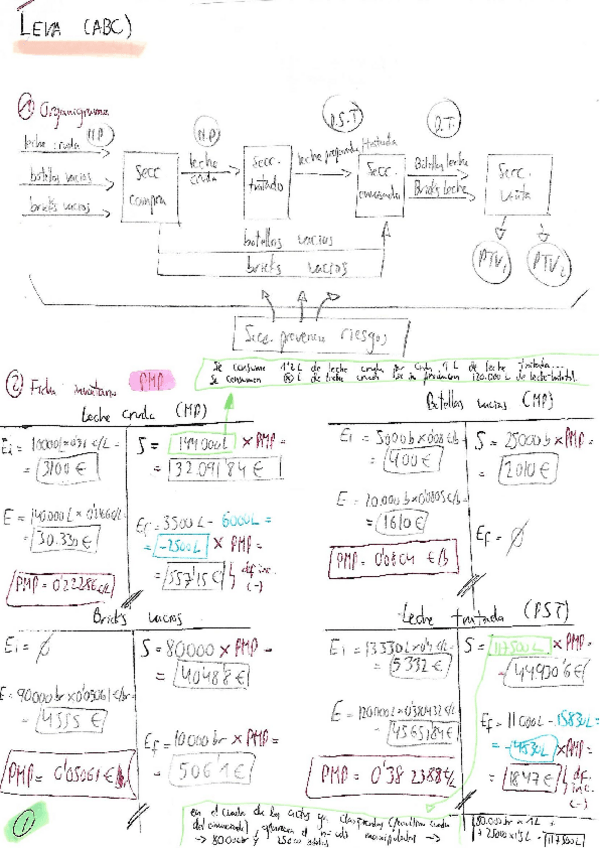 LEVA (ABC)
① Organigrama
M.P
M.P
P.S.T
P.T.
leche cruda
botellas vacias
bricks vacios
Secc compra
leche cruda
Secc. tratado
leche preparada/tratada
Secc.
Botellas leche
Bricks leche
Secc. venta
botellas vacias
bricks vacios
PTV₁
PTV₂
Secc. prevencio riesgos
② Ficha inventario PMP
Se consume 1'2 L de leche cruda por cada 1 L de leche tratada...
Se consumen L de leche cruda 120.000 L de leche tratada.
Leche cruda (MP)
Ei = 10000L x 0'31 €/L =
= 3100 €
E = 140.000L x
= 30.330 €
PMP = 0'22286 €/L
S = 144000L x PMP =
= 32.091'84 €
Ef = 3500L - 6000L =
= -2500L x PMP =
= 557'15 €
(-)
Botellas vacias (MP)
Ei = 5000 b x 0'08 €/b
= 400 €
E = 20.000 b x 0'0805 €/b =
= 1610 €
PMP = 0'0804 €/b
S = 25000 b x PMP =
= 2010 €
Ef = ∅
Bricks vacios
Ei = ∅
E = 90000br x 0'05061 €/br =
= 4555 €
PMP = 0'05061 €/
S = 80000 x PMP =
= 4048'8 €
Ef = 10000br x PMP =
= 506'1 €
Leche tratada (PST)
Ei = 13330L x 0'4 €/L =
= 5332 €
E = 120000L x 0'380432 €/L =
= 45651'84 €
PMP = 0'382388 €/L
S = 117500L x PMP =
= 44930'6 €
Ef = 11000L - 15830L
= -4830L x PMP =
= 1847 €
(-)
①
en el cuadro de los costes
→ 80000br y 25000
80.000br x 1L +
+ 25000 x 1'5L = 117500L